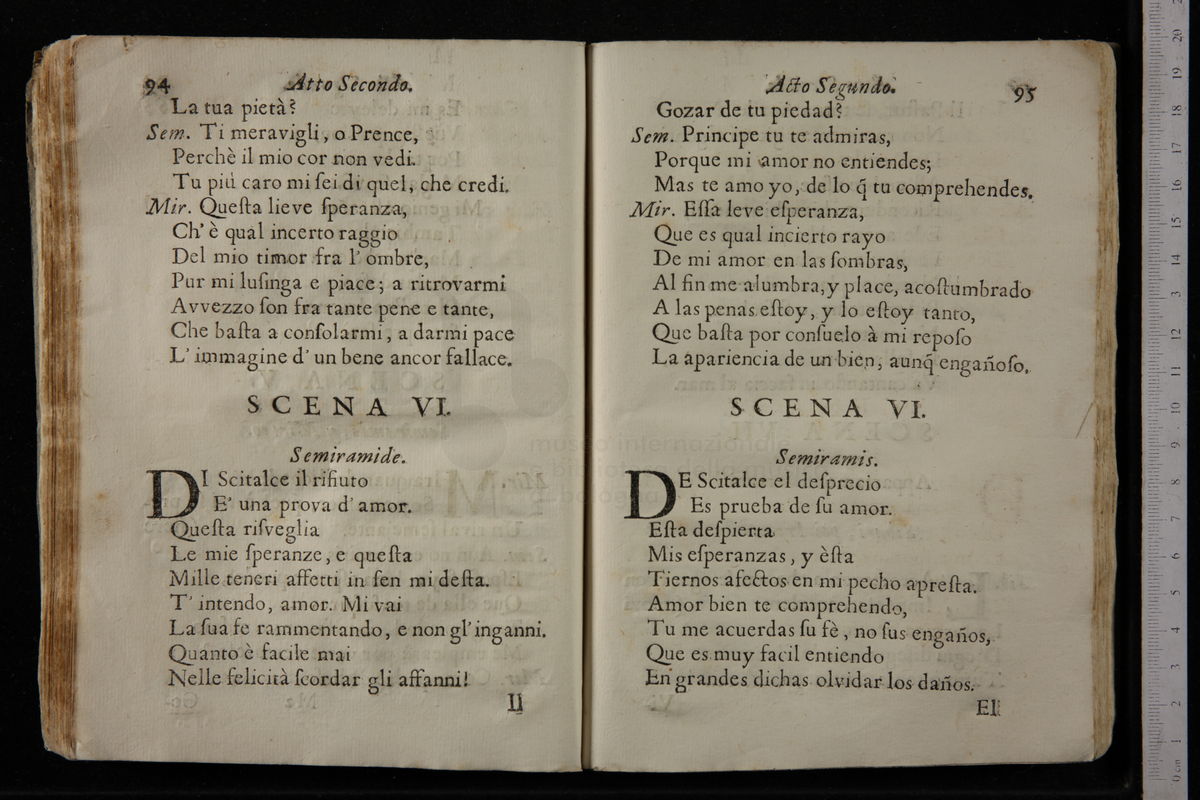 94
Atto Secondo.
La tua pietà?
Sem. Ti meravigli, o Prence,
Perchè il mio cor non vedi.
Tu più caro mi ſei di quel, che credi.
Mir. Queſta lieve ſperanza,
Ch' è qual incerto raggio
Del mio timor fra l' ombre,
Pur mi luſinga e piace; a ritrovarmi
Avvezzo ſon fra tante pene e tante,
Che baſta a conſolarmi, a darmi pace
L' immagine d' un bene ancor fallace.
SCENA VI.
Semiramide.
DI Scitalce il rifiuto
E' una prova d' amor.
Queſta riſveglia
Le mie ſperanze, e queſta
Mille teneri affetti in ſen mi deſta.
T' intendo, amor. Mi vai
La ſua fe rammentando, e non gl' inganni.
Quanto è facile mai
Nelle felicità ſcordar gli affanni!
Il
Acto Segundo.
95
Gozar de tu piedad?
Sem. Principe tu te admiras,
Porque mi amor no entiendes;
Mas te amo yo, de lo q̃ tu comprehendes.
Mir. Eſſa leve eſperanza,
Que es qual incierto rayo
De mi amor en las ſombras,
Al fin me alumbra, y place, acoſtumbrado
A las penas eſtoy, y lo eſtoy tanto,
Que baſta por conſuelo à mi repoſo
La apariencia de un bien, aunq̃ engañoſo,
SCENA VI.
Semiramis.
DE Scitalce el deſprecio
Es prueba de ſu amor.
Eſta deſpierta
Mis eſperanzas, y èſta
Tiernos afectos en mi pecho apreſta.
Amor bien te comprehendo,
Tu me acuerdas ſu fè, no ſus engaños,
Que es muy facil entiendo
En grandes dichas olvidar los daños.
El